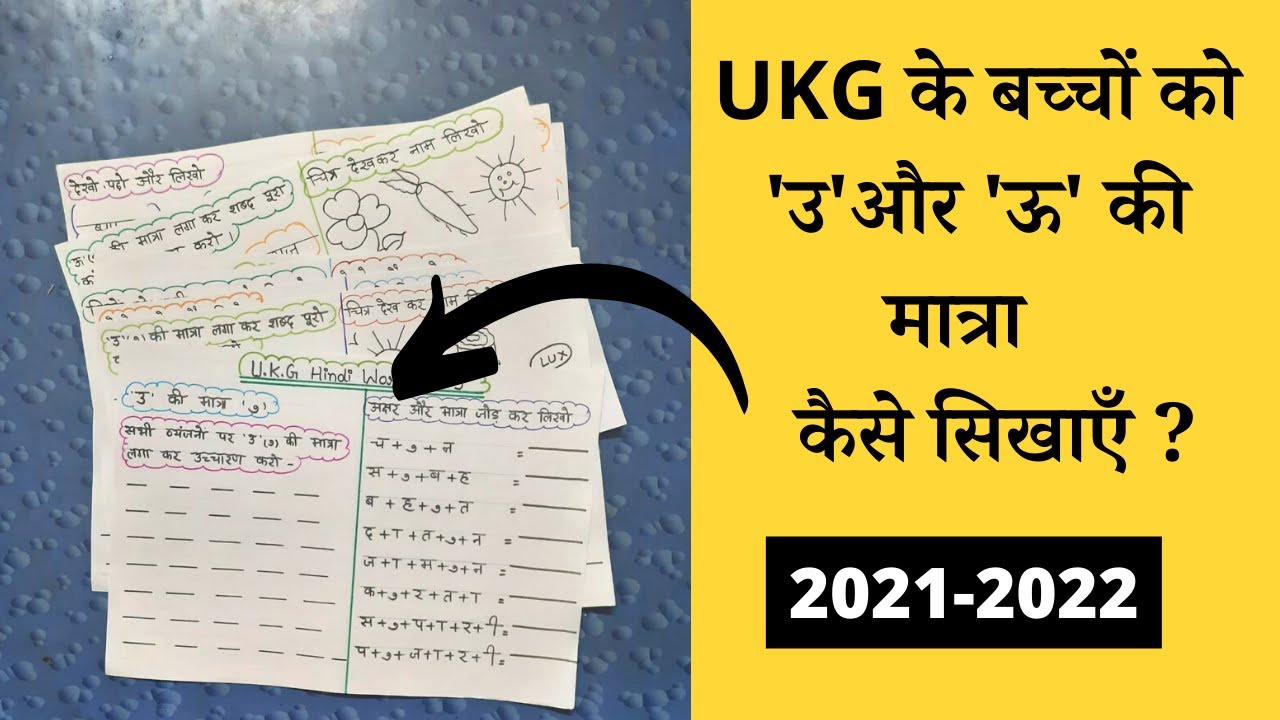 UKG के बच्चों को
'उ'और 'ऊ' की
मात्रा
कैसे सिखाएँ ?
2021-2022
देखो पढ़ो और लिखो
चित्र देखकर नाम लिखो
मात्रा लगा कर शब्द पूरा
करो
की मात्रा लगा कर शब्द पूरो
चित्र देख कर
U.K.G Hindi
'उ' की मात्र 'ु'
सभी व्यंजनो पर 'उ'(ु) की मात्रा
लगा कर उच्चारण करो -
अक्षर और मात्रा जोड़ कर लिखो
च + ु + न =
स + ु + ब + ह =
ब + ह + ु + त =
द + ा + त + ु + न =
ज + ा + म + ु + न =
क + ु + र + त + ा =
स + ु + प + ा + र + ी =
प + ु + ज + ा + र + ी =